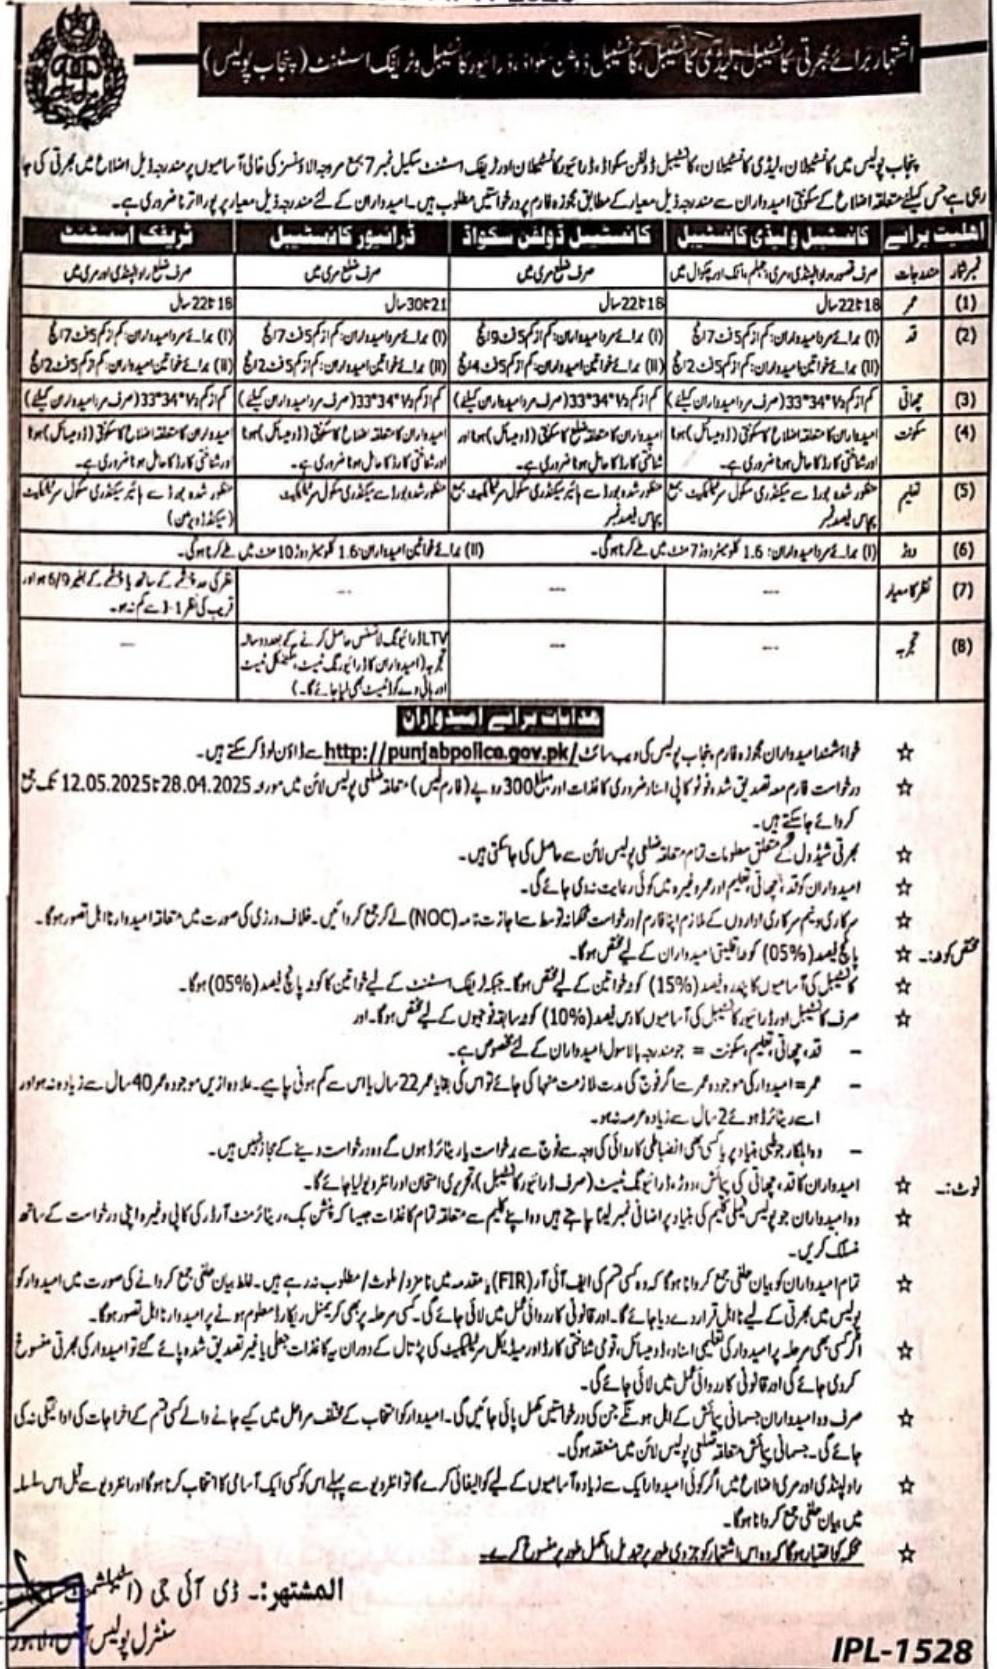 اشتہار برائے بھرتی کانسٹیبل، لیڈی کانسٹیبل، کانسٹیبل ڈولفن سکواڈ، ڈرائیور کانسٹیبل و ٹریفک اسسٹنٹ (پنجاب پولیس)
پنجاب پولیس میں کانسٹیبلان، لیڈی کانسٹیبلان، کانسٹیبل ڈولفن سکواڈ، ڈرائیور کانسٹیبلان اور ٹریفک اسسٹنٹ سکیل نمبر 7 بمع مروجہ الاؤنسز کی خالی آسامیوں پر مندرجہ ذیل اضلاع میں بھرتی کی جا
رہی ہے جس کیلئے متعلقہ اضلاع کے سکونتی امیدواران سے مندرجہ ذیل معیار کے مطابق مجوزہ فارم پر درخواستیں مطلوب ہیں۔ امیدواران کے لئے مندرجہ ذیل معیار پر پورا اترنا ضروری ہے۔
اہلیت برائے کانسٹیبل و لیڈی کانسٹیبل کانسٹیبل ڈولفن سکواڈ ڈرائیور کانسٹیبل ٹریفک اسسٹنٹ
نمبر شمار مندرجات صرف قصور، راولپنڈی، مری، جہلم، اٹک اور چکوال میں صرف ضلع مری میں صرف ضلع مری میں صرف ضلع راولپنڈی اور مری میں
(1) عمر 18 تا 22 سال 18 تا 22 سال 21 تا 30 سال 18 تا 22 سال
(2) قد (I) برائے مرد امیدواران: کم از کم 5 فٹ 7 انچ (I) برائے مرد امیدواران: کم از کم 5 فٹ 9 انچ (I) برائے مرد امیدواران: کم از کم 5 فٹ 7 انچ (I) برائے مرد امیدواران: کم از کم 5 فٹ 7 انچ
(II) برائے خواتین امیدواران: کم از کم 5 فٹ 2 انچ (II) برائے خواتین امیدواران: کم از کم 5 فٹ 4 انچ (II) برائے خواتین امیدواران: کم از کم 5 فٹ 2 انچ (II) برائے خواتین امیدواران: کم از کم 5 فٹ 2 انچ
(3) چھاتی کم از کم 33*34½ (صرف مرد امیدواران کیلئے) کم از کم 33*34½ (صرف مرد امیدواران کیلئے) کم از کم 33*34½ (صرف مرد امیدواران کیلئے) کم از کم 33*34½ (صرف مرد امیدواران کیلئے)
(4) سکونت امیدواران کا متعلقہ اضلاع کا سکونتی (ڈومیسائل) ہونا امیدواران کا متعلقہ ضلع کا سکونتی (ڈومیسائل) ہونا اور امیدواران کا متعلقہ اضلاع کا سکونتی (ڈومیسائل) ہونا امیدواران کا متعلقہ اضلاع کا سکونتی (ڈومیسائل) ہونا
اور شناختی کارڈ کا حامل ہونا ضروری ہے۔ شناختی کارڈ کا حامل ہونا ضروری ہے۔ اور شناختی کارڈ کا حامل ہونا ضروری ہے۔ اور شناختی کارڈ کا حامل ہونا ضروری ہے۔
(5) تعلیم منظور شدہ بورڈ سے سیکنڈری سکول سرٹیفکیٹ بمع منظور شدہ بورڈ سے ہائیر سیکنڈری سکول سرٹیفکیٹ بمع منظور شدہ بورڈ سے سیکنڈری سکول سرٹیفکیٹ منظور شدہ بورڈ سے ہائیر سیکنڈری سکول سرٹیفکیٹ
پچاس فیصد نمبر پچاس فیصد نمبر (سیکنڈ ڈویژن)
(6) دوڑ (I) برائے مرد امیدواران: 1.6 کلومیٹر دوڑ 7 منٹ میں طے کرنا ہوگی۔ (II) برائے خواتین امیدواران: 1.6 کلومیٹر دوڑ 10 منٹ میں طے کرنا ہوگی۔
(7) نظر کا معیار --- --- --- نظر کی حد چشمے کے ساتھ یا چشمے کے بغیر 6/9 ہو اور
قریب کی نظر J-1 سے کم نہ ہو۔
(8) تجربہ --- --- LTV ڈرائیونگ لائسنس حاصل کرنے کے بعد دو سالہ ---
تجربہ (امیدواران کا ڈرائیورنگ ٹیسٹ، مکینیکل ٹیسٹ
اور ہائی وے کوڈ ٹیسٹ بھی لیا جائے گا۔)
ہدایات برائے امیدواران
☆ خواہشمند امیدواران مجوزہ فارم پنجاب پولیس کی ویب سائٹ http://punjabpolice.gov.pk/ سے ڈاؤن لوڈ کر سکتے ہیں۔
☆ درخواست فارم معہ تصدیق شدہ فوٹو کاپی اسناد ضروری کاغذات اور مبلغ 300 روپے (فارم فیس) متعلقہ ضلعی پولیس لائن میں مورخہ 28.04.2025 تا 12.05.2025 تک جمع
کروائے جا سکتے ہیں۔
☆ بھرتی شیڈول کے متعلق معلومات تمام متعلقہ ضلعی پولیس لائن سے حاصل کی جا سکتی ہیں۔
☆ امیدواران کو قد، چھاتی، تعلیم اور عمر وغیرہ میں کوئی رعایت نہ دی جائے گی۔
☆ سرکاری و نیم سرکاری اداروں کے ملازم اپنا فارم/درخواست محکمانہ توسط سے اجازت نامہ (NOC) لے کر جمع کروائیں۔ خلاف ورزی کی صورت میں متعلقہ امیدوار نا اہل تصور ہوگا۔
مختص کوٹہ:۔ ☆ پانچ فیصد (05%) کوٹہ اقلیتی امیدواران کے لیے مختص ہوگا۔
☆ کانسٹیبل کی آسامیوں کا پندرہ فیصد (15%) کوٹہ خواتین کے لیے مختص ہوگا۔ جبکہ ٹریفک اسسٹنٹ کے لیے خواتین کا کوٹہ پانچ فیصد (05%) ہوگا۔
☆ صرف کانسٹیبل اور ڈرائیور کانسٹیبل کی آسامیوں کا دس فیصد (10%) کوٹہ سابقہ فوجیوں کے لیے مختص ہوگا۔ اور
– قد، چھاتی، تعلیم، سکونت = جو مندرجہ بالا سول امیدواران کے لئے مخصوص ہے۔
– عمر = امیدوار کی موجودہ عمر سے اگر فوج کی مدت ملازمت منہا کی جائے تو اس کی بقایا عمر 22 سال یا اس سے کم ہونی چاہیے۔ علاوہ ازیں موجودہ عمر 40 سال سے زیادہ نہ ہو اور
اسے ریٹائرڈ ہوئے 2 سال سے زیادہ عرصہ نہ ہو۔
– وہ اہلکار جو طبی بنیاد پر یا کسی بھی انضباطی کاروائی کی وجہ سے فوج سے برخواست یا ریٹائرڈ ہوں گے وہ درخواست دینے کے مجاز نہیں ہیں۔
نوٹ:۔ ☆ امیدواران کا قد، چھاتی کی پیمائش، دوڑ، ڈرائیونگ ٹیسٹ (صرف ڈرائیور کانسٹیبل)، تحریری امتحان اور انٹرویو لیا جائے گا۔
☆ وہ امیدواران جو پولیس فیملی کلیم کی بنیاد پر اضافی نمبر لینا چاہتے ہیں وہ اپنے کلیم سے متعلقہ تمام کاغذات جیسا کہ پنشن بک، ریٹائرمنٹ آرڈر کی کاپی وغیرہ اپنی درخواست کے ساتھ
منسلک کریں۔
☆ تمام امیدواران کو بیان حلفی جمع کروانا ہوگا کہ وہ کسی قسم کی ایف آئی آر (FIR) یا مقدمہ میں نامزد/ملوث/مطلوب نہ رہے ہیں۔ غلط بیان حلفی جمع کروانے کی صورت میں امیدوار کو
پولیس میں بھرتی کے لیے نا اہل قرار دے دیا جائے گا۔ اور قانونی کارروائی عمل میں لائی جائے گی۔ کسی مرحلہ پر بھی کریمنل ریکارڈ معلوم ہونے پر امیدوار نا اہل تصور ہوگا۔
☆ اگر کسی بھی مرحلہ پر امیدوار کی تعلیمی اسناد، ڈومیسائل، قومی شناختی کارڈ اور میڈیکل سرٹیفکیٹ کی پڑتال کے دوران یہ کاغذات جعلی یا غیر تصدیق شدہ پائے گئے تو امیدوار کی بھرتی منسوخ
کر دی جائے گی اور قانونی کارروائی عمل میں لائی جائے گی۔
☆ صرف وہ امیدواران جسمانی پیمائش کے اہل ہونگے جن کی درخواستیں مکمل پائی جائیں گی۔ امیدوار کو انتخاب کے مختلف مراحل میں کیے جانے والے کسی قسم کے اخراجات کی ادائیگی نہ کی
جائے گی۔ جسمانی پیمائش متعلقہ ضلعی پولیس لائن میں منعقد ہوگی۔
☆ راولپنڈی اور مری اضلاع میں اگر کوئی امیدوار ایک سے زیادہ آسامیوں کے لیے کوالیفائی کرے گا تو انٹرویو سے پہلے اس کو کسی ایک آسامی کا انتخاب کرنا ہوگا اور انٹرویو سے قبل اس سلسلہ
میں بیان حلفی جمع کروانا ہوگا۔
☆ محکمہ کو اختیار ہوگا کہ وہ اس اشتہار کو جزوی طور پر تبدیل یا مکمل طور پر منسوخ کرے۔
المشتہر:۔ ڈی آئی جی (اسٹیبلشمنٹ
سنٹرل پولیس آفس، لاہور
IPL-1528